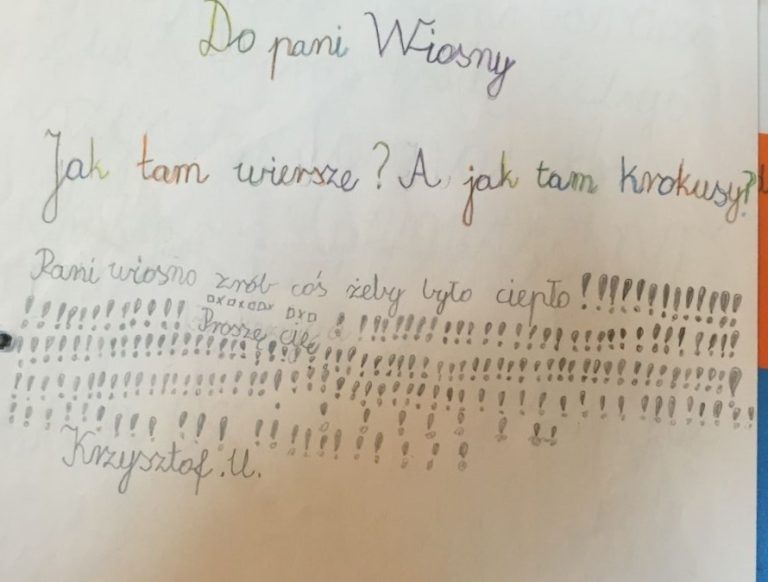 Do pani Wiosny
Jak tam wiersze? A jak tam krokusy?
Pani wiosno zrób coś żeby było ciepło!!!!!!!!!!!!!!
!!!!!!!!!!!!! Proszę cię ! !!!!!!!!!!!!!!!!!!!!!!!!!!
!!!!!!!!!!!!!!!!!!!!!!!!!!!!!!!!!!!!!!!!!!!!!!!!
!!!!!!!!!!!!!!!!!!!!!!!!!!!!!!!!!!!!!!!!!!!!
!!!!!!!!!!!!!!!!!!!!!!!!!!!!!!
Krzysztof.U.